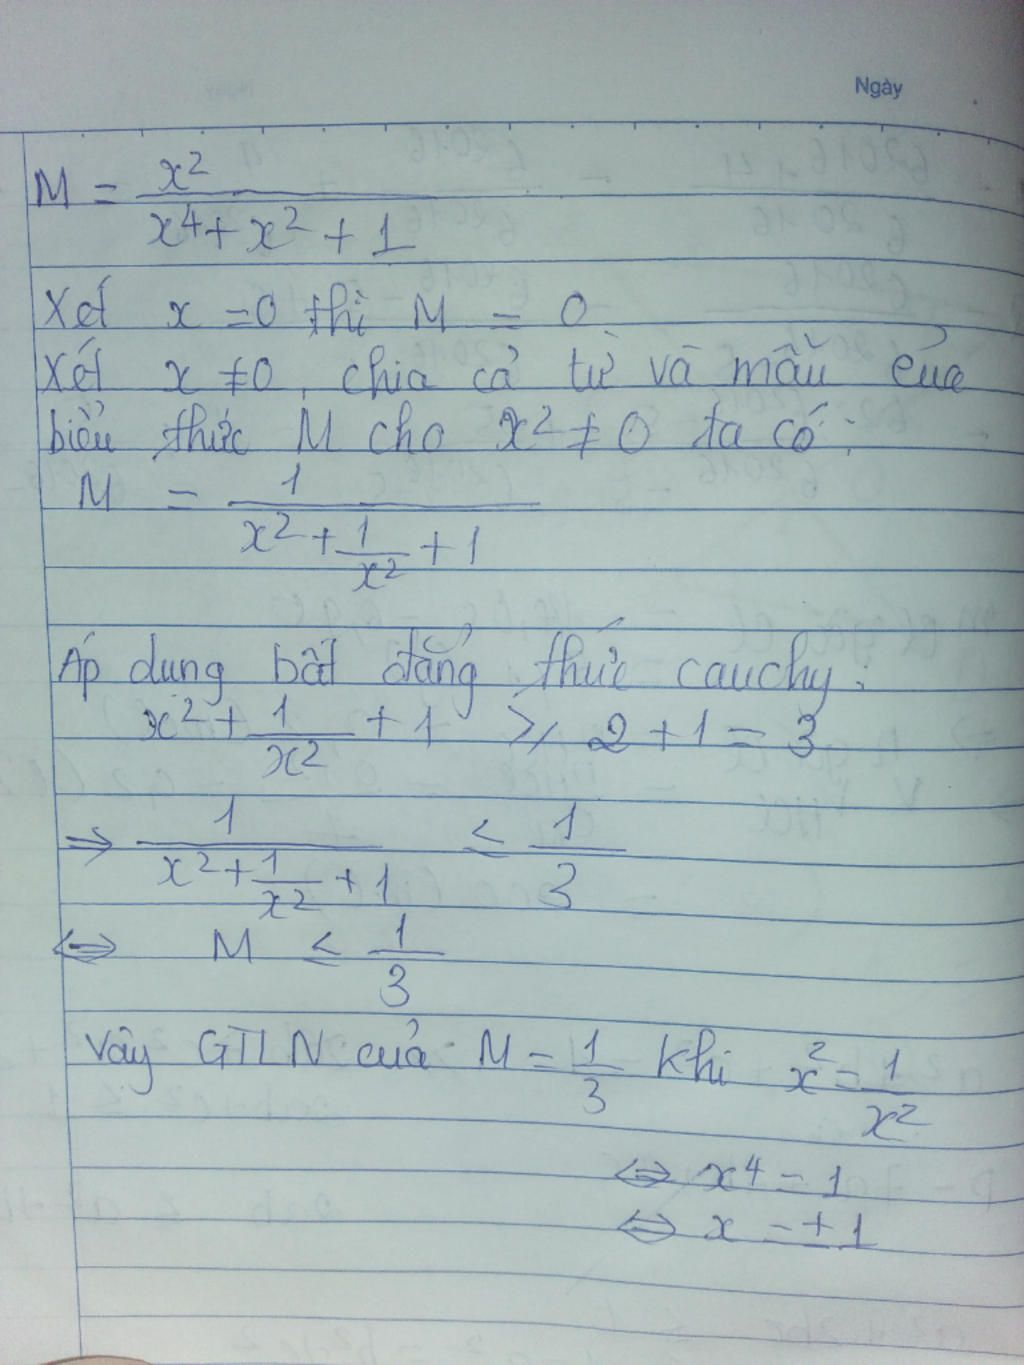 Ngày
M = x²/(x⁴ + x² + 1)
Xét x = 0 thì M = 0
Xét x ≠ 0, chia cả tử và mẫu của
biểu thức M cho x² ≠ 0 ta có:
M = 1/(x² + 1/x² + 1)
Áp dụng bất đẳng thức cauchy:
x² + 1/x² + 1 ⩾ 2 + 1 = 3
⇒ 1/(x² + 1/x² + 1) ≤ 1/3
⇔ M ≤ 1/3
Vậy GTLN của M = 1/3 khi x² = 1/x²
⇔ x⁴ = 1
⇔ x = ±1